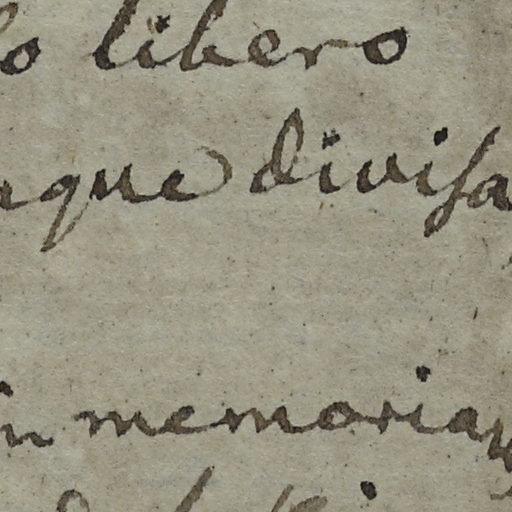 libero
que divisa
in memoriam